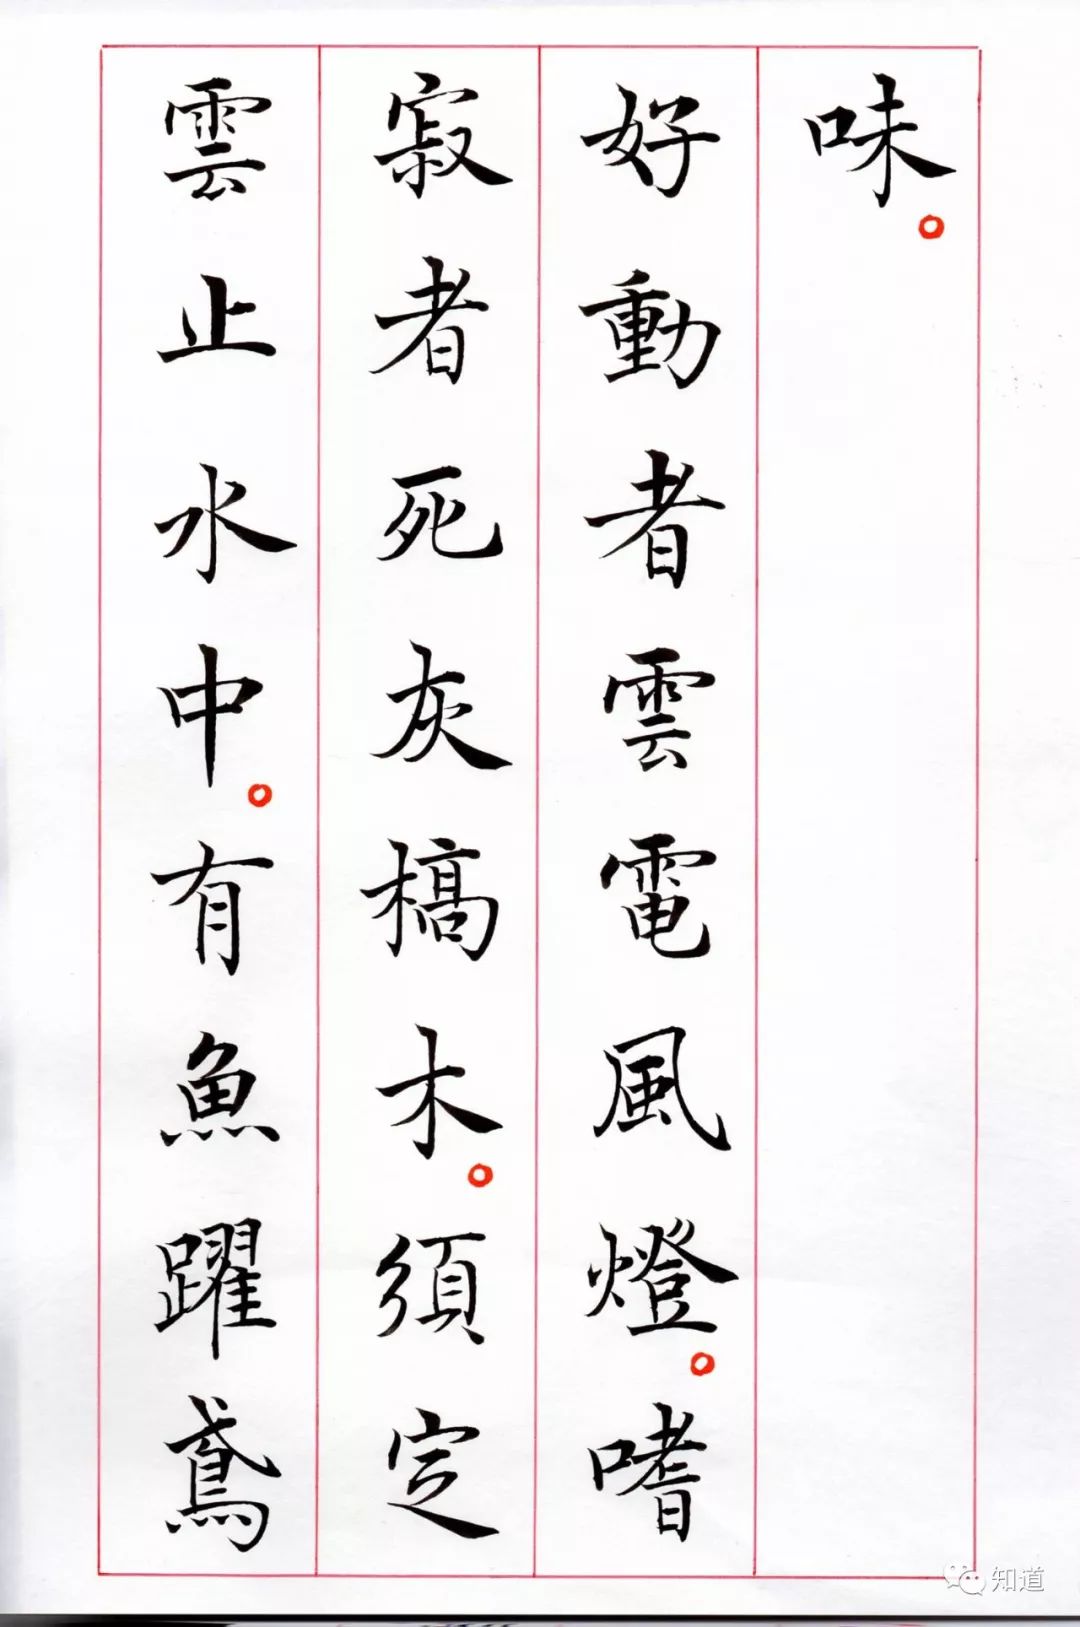 味。
好動者雲電風燈。嗜
寂者死灰槁木。須定
雲止水中。有魚躍鳶
知道